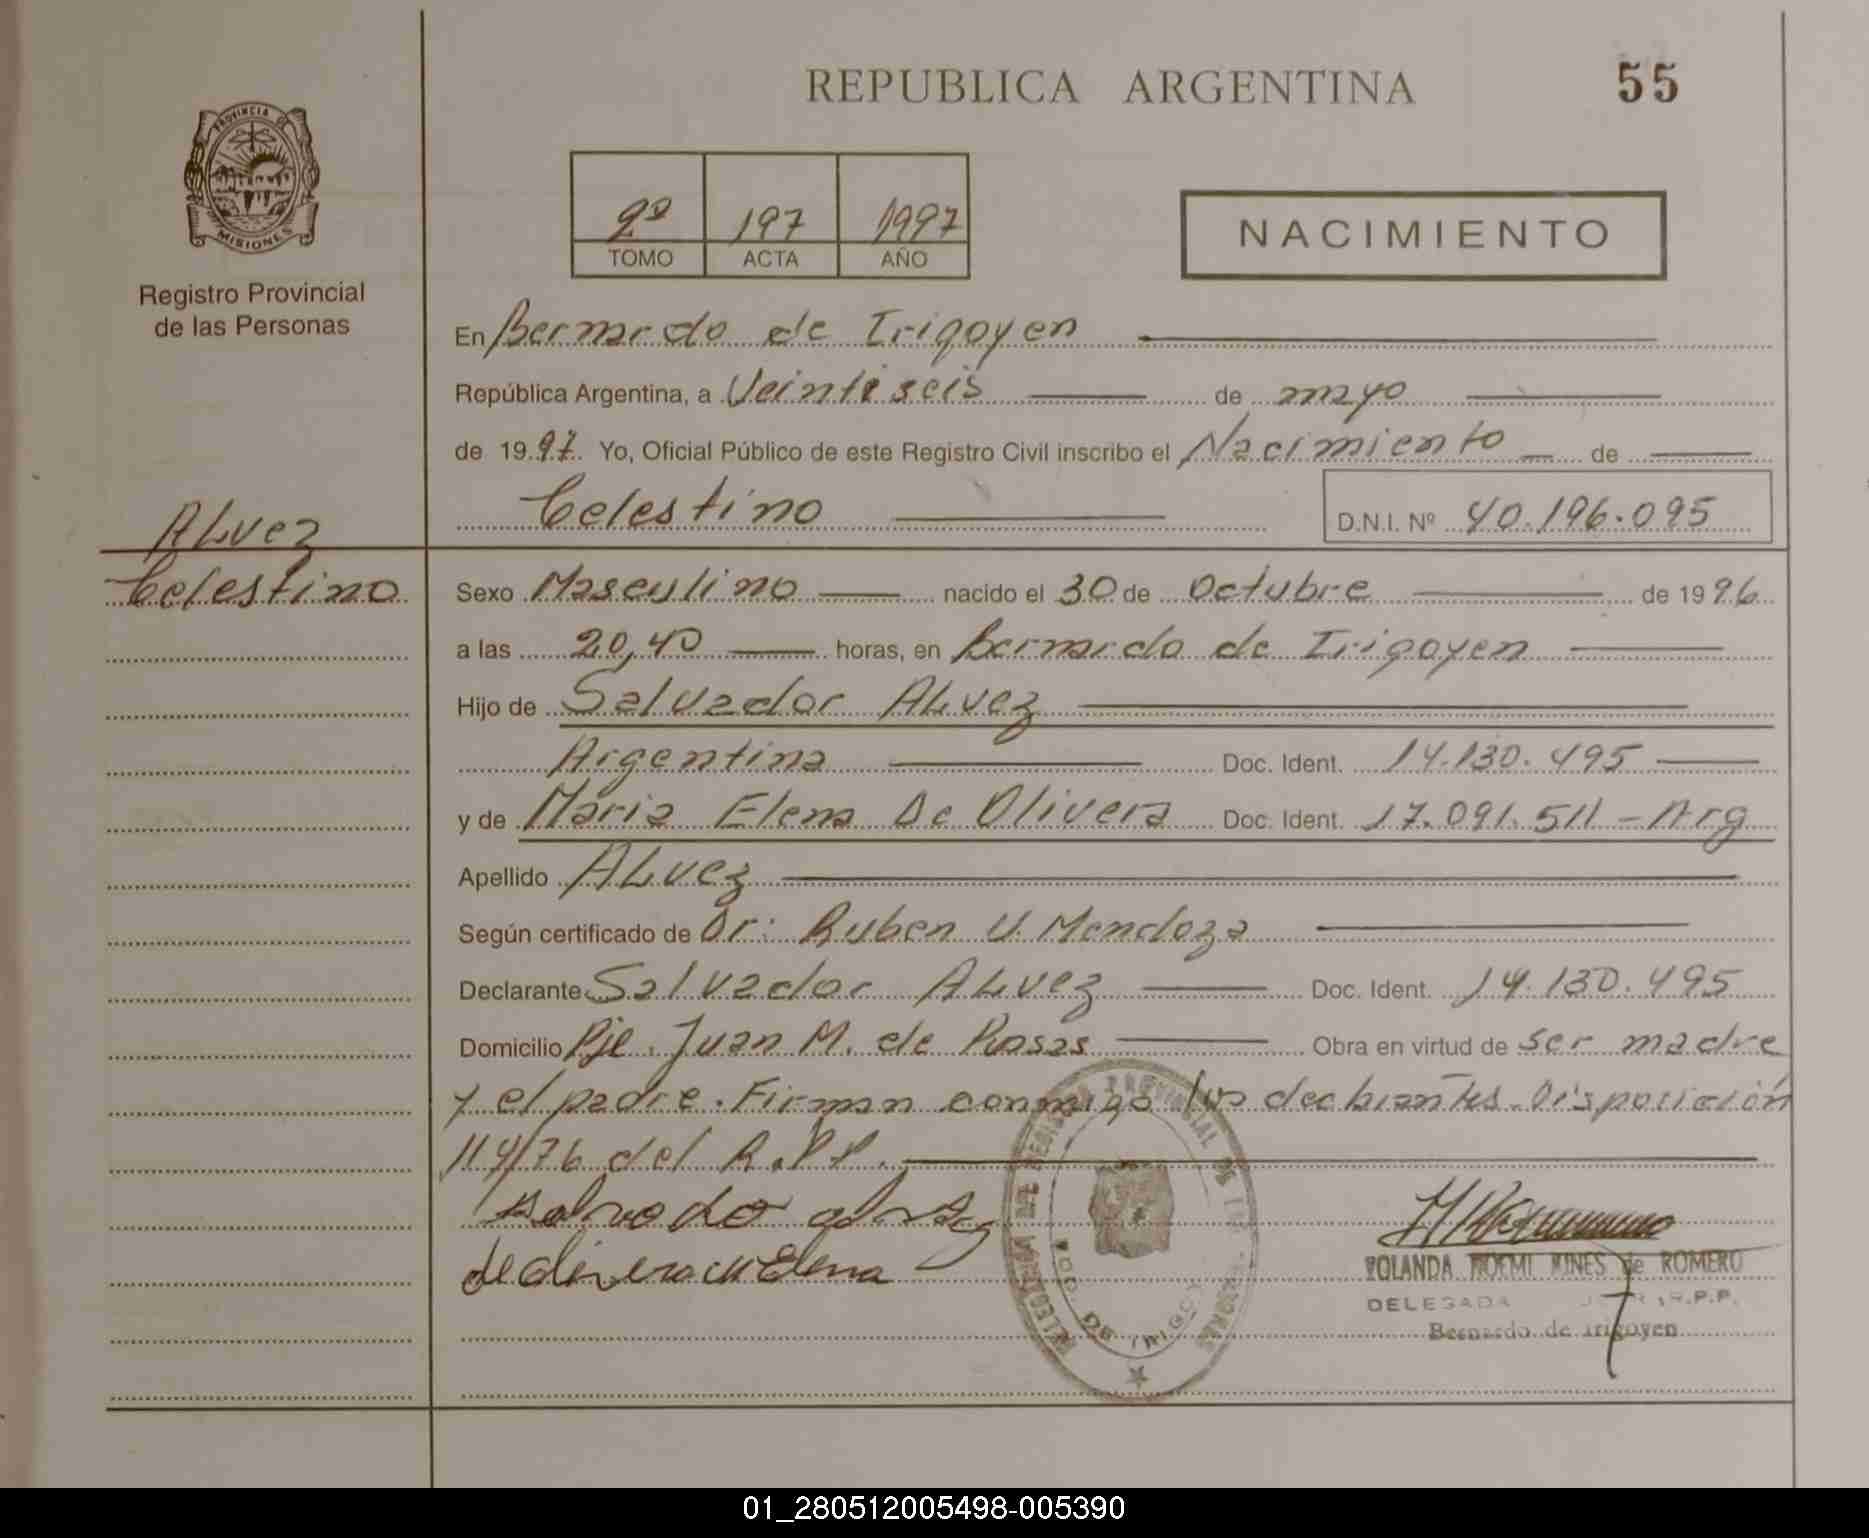 REPUBLICA ARGENTINA
55
PROVINCIA DE
MISIONES
Registro Provincial
de las Personas
2º 197 1997
TOMO ACTA AÑO
NACIMIENTO
En Bernardo de Irigoyen
República Argentina, a Veintiseis de mayo
de 1997 Yo, Oficial Público de este Registro Civil inscribo el Nacimiento de
Celestino
D.N.I. Nº 40.196.095
ALvez
Celestino
Sexo Masculino nacido el 30 de Octubre de 1996
a las 20,40 horas, en Bernardo de Irigoyen
Hijo de Salvador ALvez
Argentina Doc. Ident. 14.130.495
y de Maria Elena De Olivera Doc. Ident. 17.091.511 - Arg
Apellido ALvez
Según certificado de Dr: Ruben V. Mendoza
Declarante Salvador ALvez Doc. Ident. 14.130.495
Domicilio Pje. Juan M. de Rosas Obra en virtud de ser madre
y el padre. Firman conmigo los declarantes. Disposición
114/76 del R.P.P.
de olivera M Elena
YOLANDA NOEMI MINES de ROMERO
DELEGADA R.P.P.
Bernardo de Irigoyen
REGISTRO PROVINCIAL DE LAS
DE IRIGOY
01_280512005498-005390